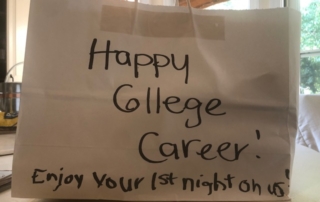 Happy
College
Career!
Enjoy your 1st night on us!